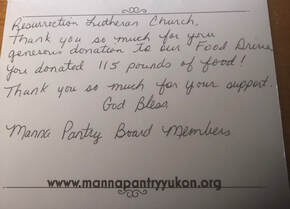 Resurrection Lutheran Church,
Thank you so much for your
generous donation to our Food Drive
You donated 115 pounds of food!
Thank you so much for your support.
God Bless
Manna Pantry Board Members
www.mannapantryyukon.org